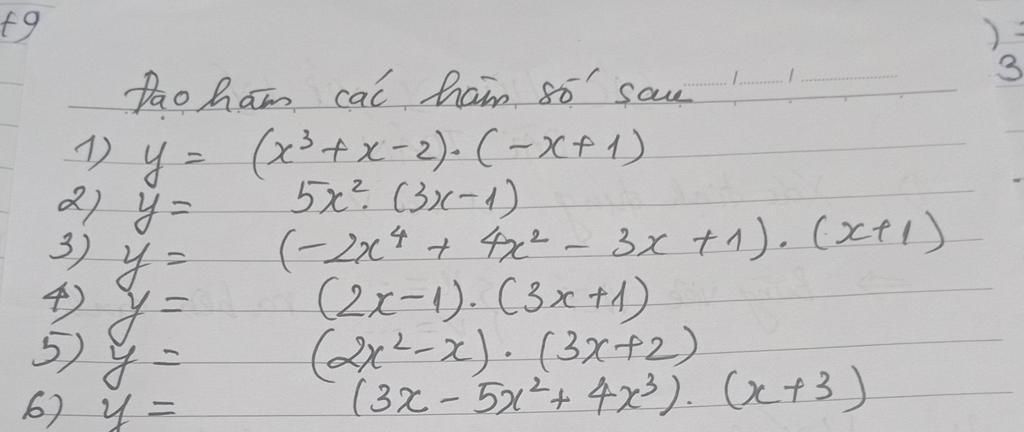 t9
) =
3
Đạo hàm các hàm số sau
1) y = (x³ + x - 2). (-x + 1)
2) y = 5x². (3x - 1)
3) y = (-2x⁴ + 4x² - 3x + 1). (x + 1)
4) y = (2x - 1). (3x + 1)
5) y = (2x² - x). (3x + 2)
6) y = (3x - 5x² + 4x³). (x + 3)